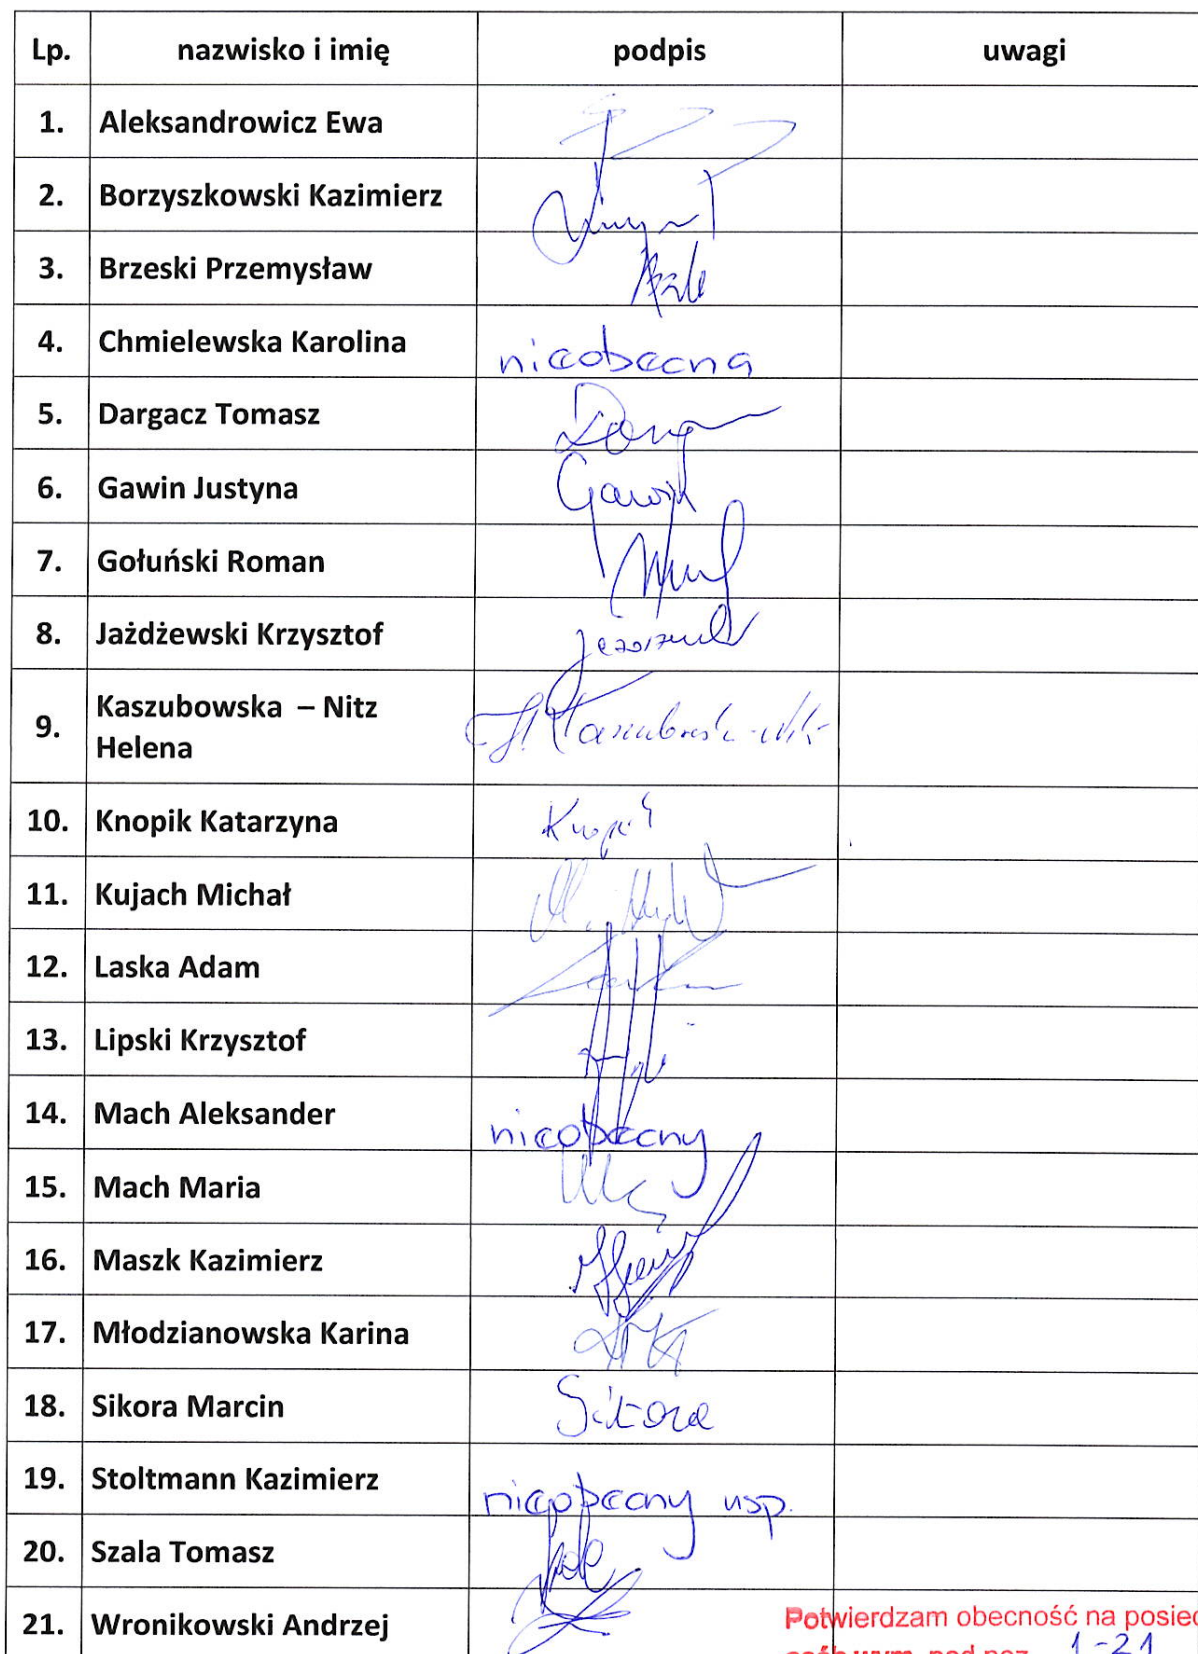 Lp. nazwisko i imię podpis uwagi
1. Aleksandrowicz Ewa
2. Borzyszkowski Kazimierz
3. Brzeski Przemysław
4. Chmielewska Karolina nieobecna
5. Dargacz Tomasz
6. Gawin Justyna Gawin
7. Gołuński Roman
8. Jażdżewski Krzysztof
9. Kaszubowska – Nitz
Helena
10. Knopik Katarzyna Knopik
11. Kujach Michał
12. Laska Adam
13. Lipski Krzysztof
14. Mach Aleksander nieobecny
15. Mach Maria
16. Maszk Kazimierz
17. Młodzianowska Karina
18. Sikora Marcin Sikora
19. Stoltmann Kazimierz nieobecny usp.
20. Szala Tomasz
21. Wronikowski Andrzej
Potwierdzam obecność na posied
osób wym. pod poz. 1-21